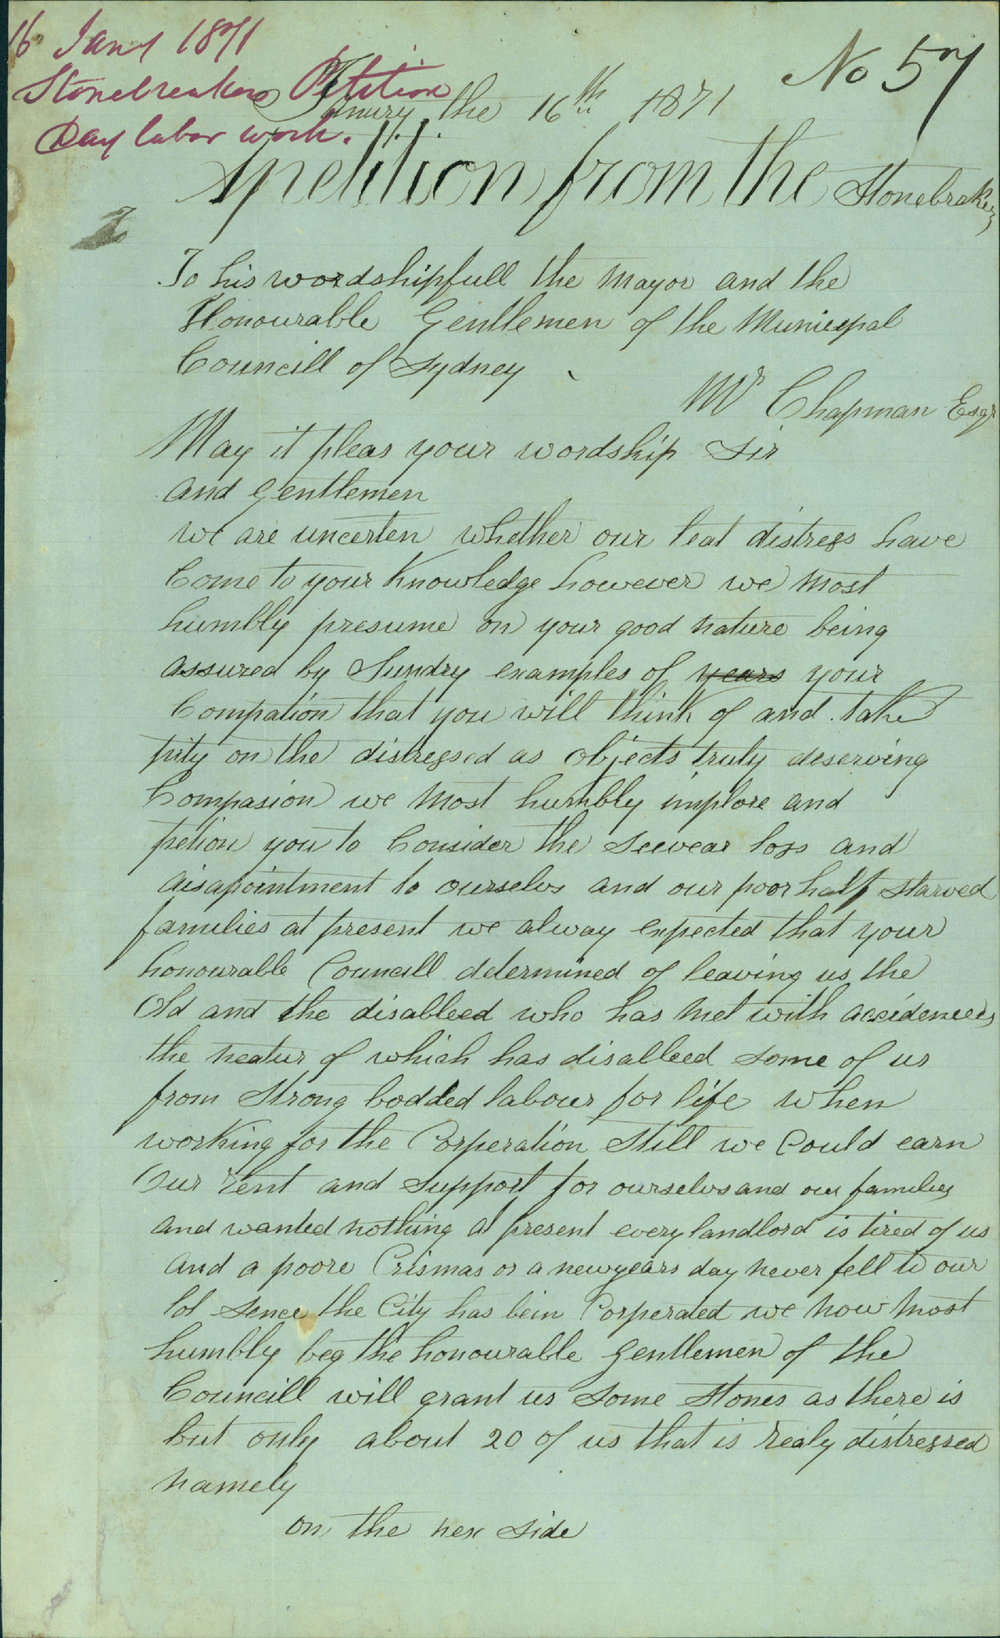 16 Jany 1871
Stonebreakers Petition
Day labor work.
No 57
Janury the 16th 1871
Apetition from the Stonebrakers
To his wordshipfull the Mayor and the
Honourable Gentlemen of the Municepal
Councill of Sydney
Mr Chapman Esqr
May it pleas your wordship Sir
and Gentlemen
we are uncerten whether our leat distress have
Come to your Knowledge however we most
humbly presume on your good nature being
assured by Sundry examples of years your
Compation that you will think of and take
pity on the distressed as objects truly deserving
Compasion we most humbly implore and
petion you to Consider the Seevear loss and
disapointment to ourselvs and our poor half Starved
families at present we alway expected that your
honourable Councill determined of leaving us the
Old and the disableed who has met with accidencees
the neatur of which has disableed some of us
from Strong bodded labour for life when
working for the Corperation Still we Could earn
Our rent and Support for ourselvs and our families
and wanted nothing at present every landlord is tired of us
and a poore Crismas or a newyears day never fell to our
lot sence the City has bein Corperated we now most
humbly beg the honourable Gentlemen of the
Councill will grant us Some Stones as there is
but only about 20 of us that is realy distressed
namely
on the nex side